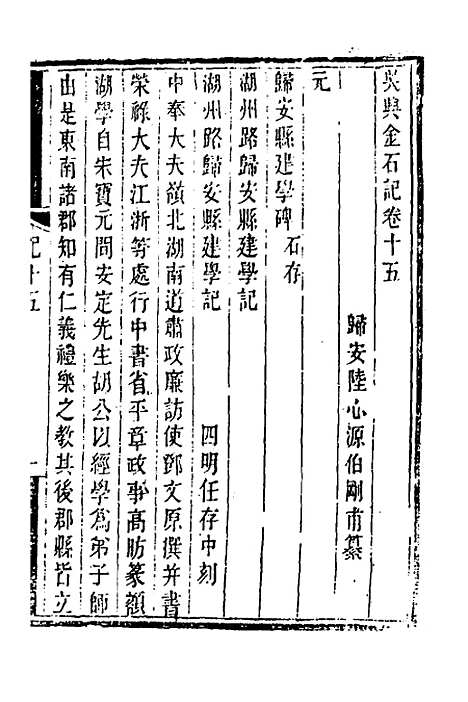 吳興金石記卷十五
歸安陸心源伯剛甫纂
元
歸安縣建學碑 石存
湖州路歸安縣建學記
湖州路歸安縣建學記 四明任存中刻
中奉大夫嶺北湖南道肅政廉訪使鄧文原撰并書
榮祿大夫江浙等處行中書省平章政事高昉篆額
湖學自宋寶元間安定先生胡公以經學為弟子師
由是東南諸郡知有仁義禮樂之教其後郡縣皆立
記十五
一